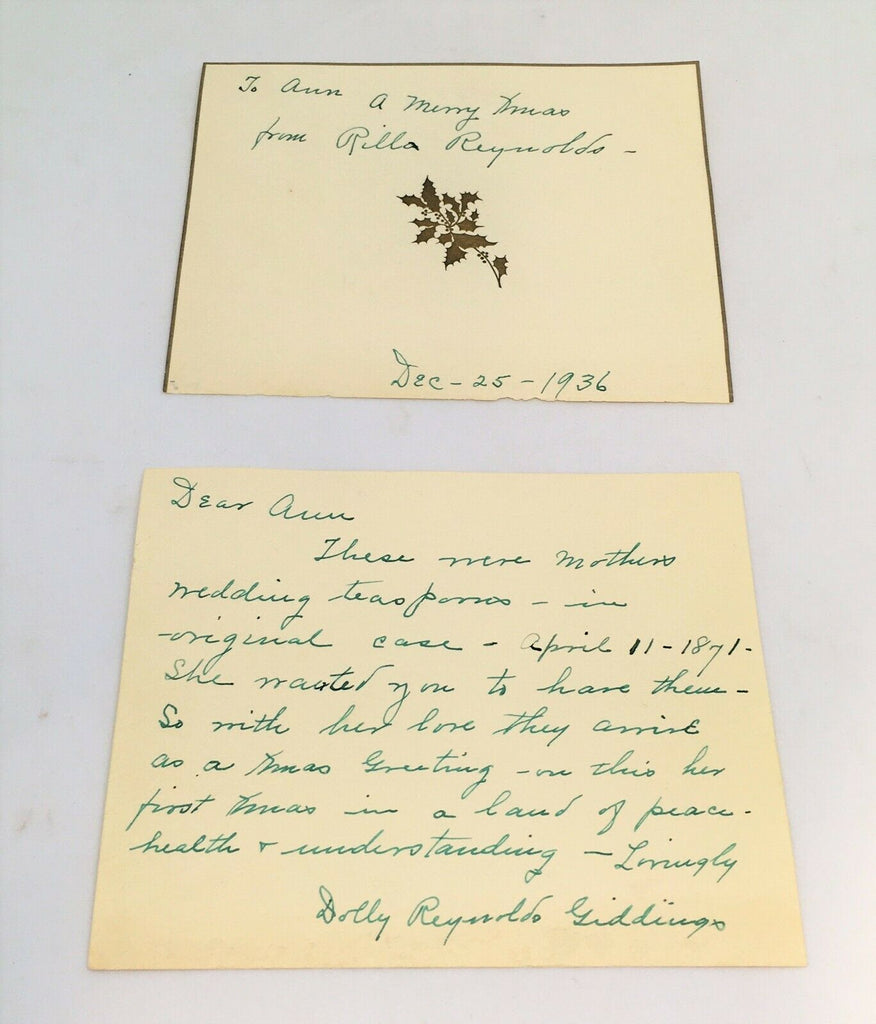 To Ann A Merry Xmas
from Rilla Reynolds -
Dec - 25 - 1936
Dear Ann
These were Mothers
wedding teaspoons - in
original case - April 11 - 1871 -
She wanted you to have them -
So with her love they arrive
as a Xmas Greeting - on this her
first Xmas in a land of peace -
health & understanding - Lovingly
Dolly Reynolds Giddings